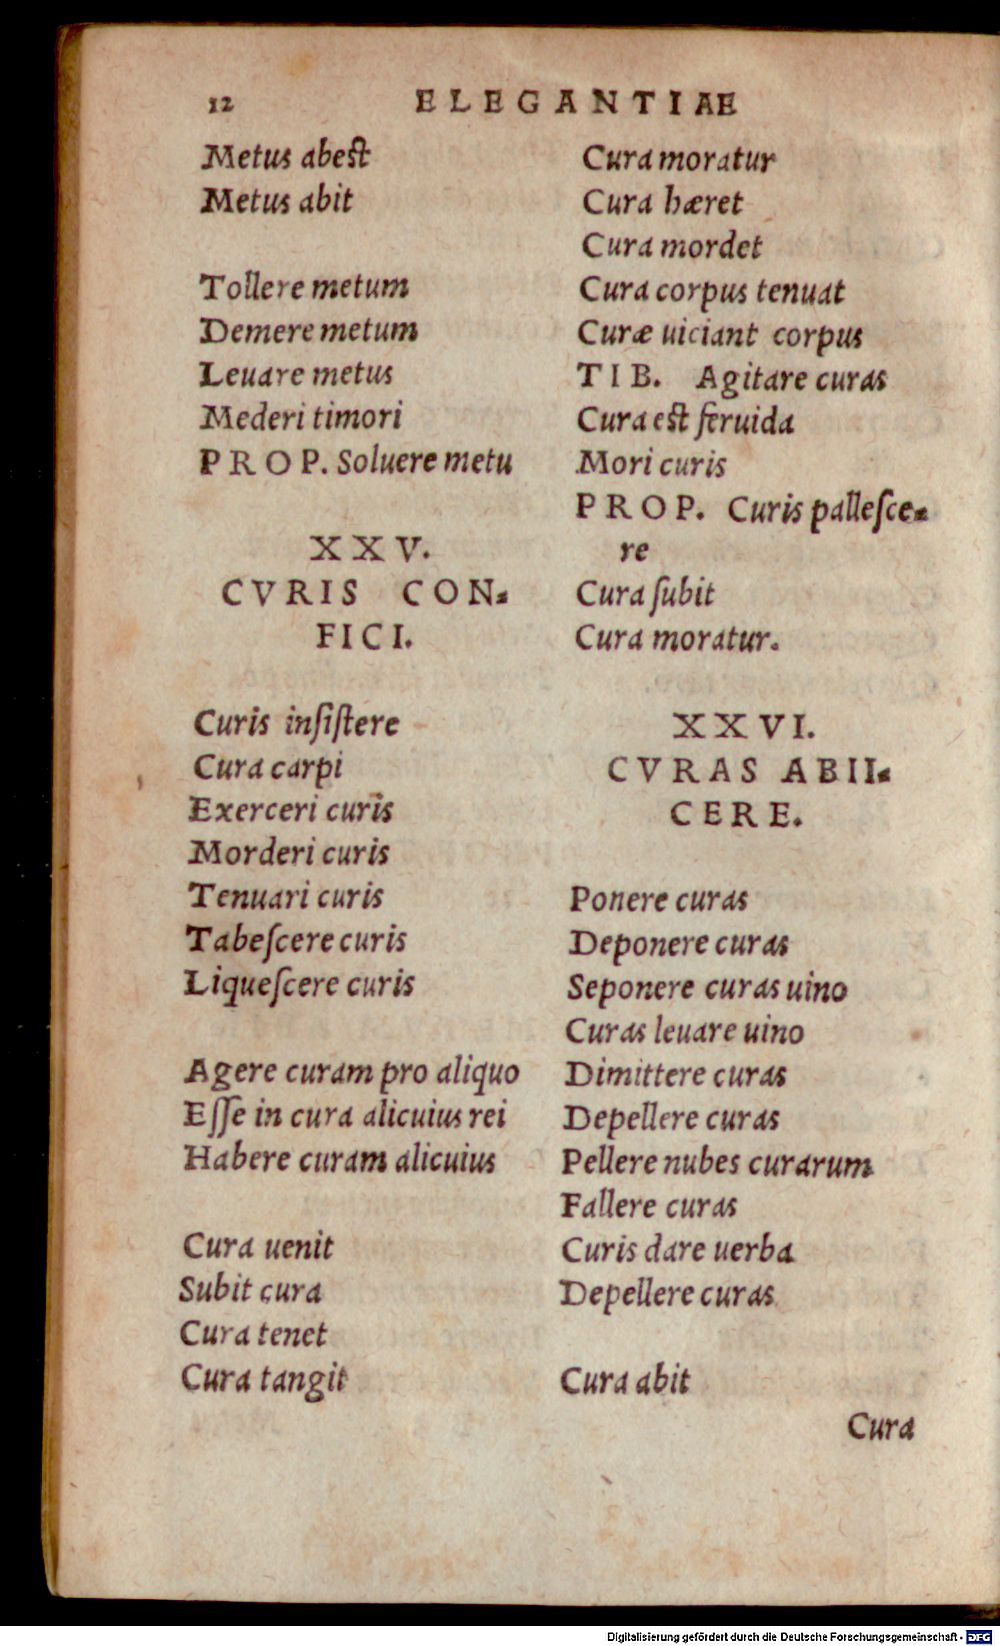 12 ELEGANTIAE
Metus abest
Metus abit
Tollere metum
Demere metum
Leuare metus
Mederi timori
PROP. Soluere metu
XXV.
CVRIS CON-
FICI.
Curis inſiſtere
Cura carpi
Exerceri curis
Morderi curis
Tenuari curis
Tabeſcere curis
Liqueſcere curis
Agere curam pro aliquo
Eſſe in cura alicuius rei
Habere curam alicuius
Cura uenit
Subit cura
Cura tenet
Cura tangit
Cura moratur
Cura hæret
Cura mordet
Cura corpus tenuat
Curæ uiciant corpus
TIB. Agitare curas
Cura est feruida
Mori curis
PROP. Curis palleſce-
re
Cura ſubit
Cura moratur.
XXVI.
CVRAS ABII-
CERE.
Ponere curas
Deponere curas
Seponere curas uino
Curas leuare uino
Dimittere curas
Depellere curas
Pellere nubes curarum
Fallere curas
Curis dare uerba
Depellere curas
Cura abit
Cura
Digitalisierung gefördert durch die Deutsche Forschungsgemeinschaft - DFG